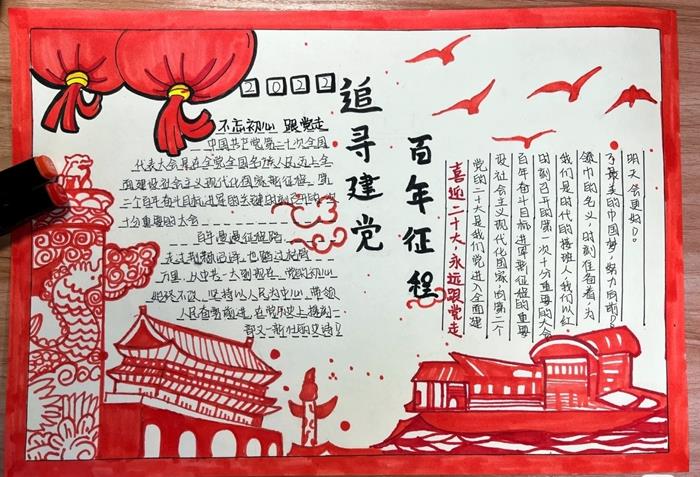 2022
追寻建党
百年征程
不忘初心 跟党走
中国共产党第二十次全国
代表大会是在全党全国各族人民迈上全
面建设社会主义现代化国家新征程,第
二个百年奋斗目标进军的关键时刻召开的一次
十分重要的大会
百年漫漫征程路
走过荆棘
万里,从中共一大到现在,党的初心
始终不改,坚持以人民为中心,带领
人民奋勇前进,在党历史上搜刻
喜迎二十大,永远跟党走
党的二十大是我们党进入全面建
设社会主义现代化国家,向第二个
百年奋斗目标进军新征程的重要
时刻召开的第一次十分重要的大会
我们是时代的接班人,我们以红
领巾的名义,时刻准备着,为
了最美的中国梦,努力向前!
明天会更好。